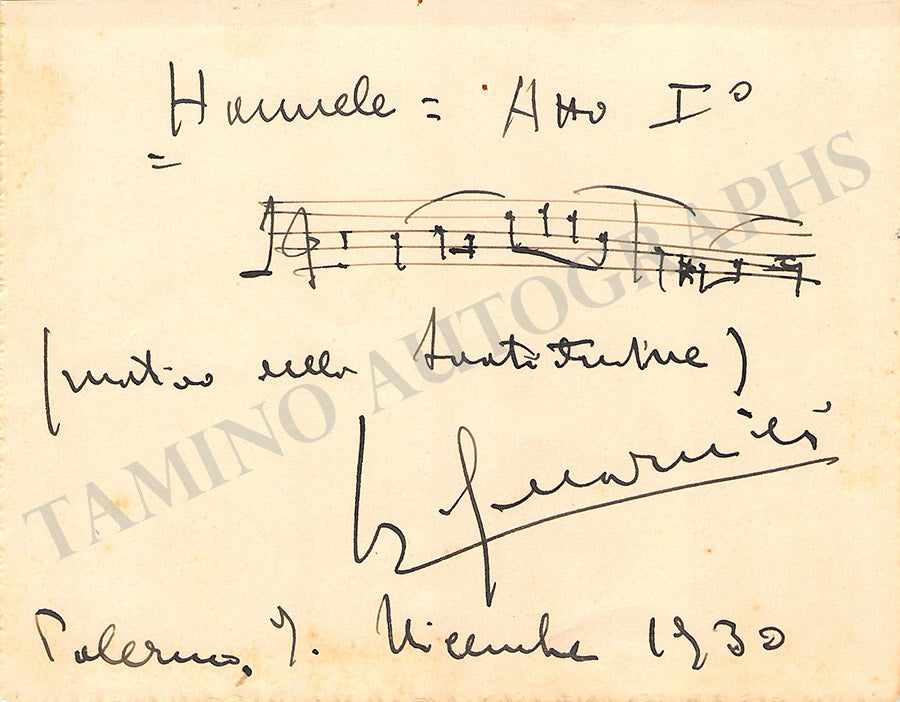 Hannele = Atto I°
(motivo della Beatitudine)
Palermo, 7. Dicembre 1930
TAMINO AUTOGRAPHS